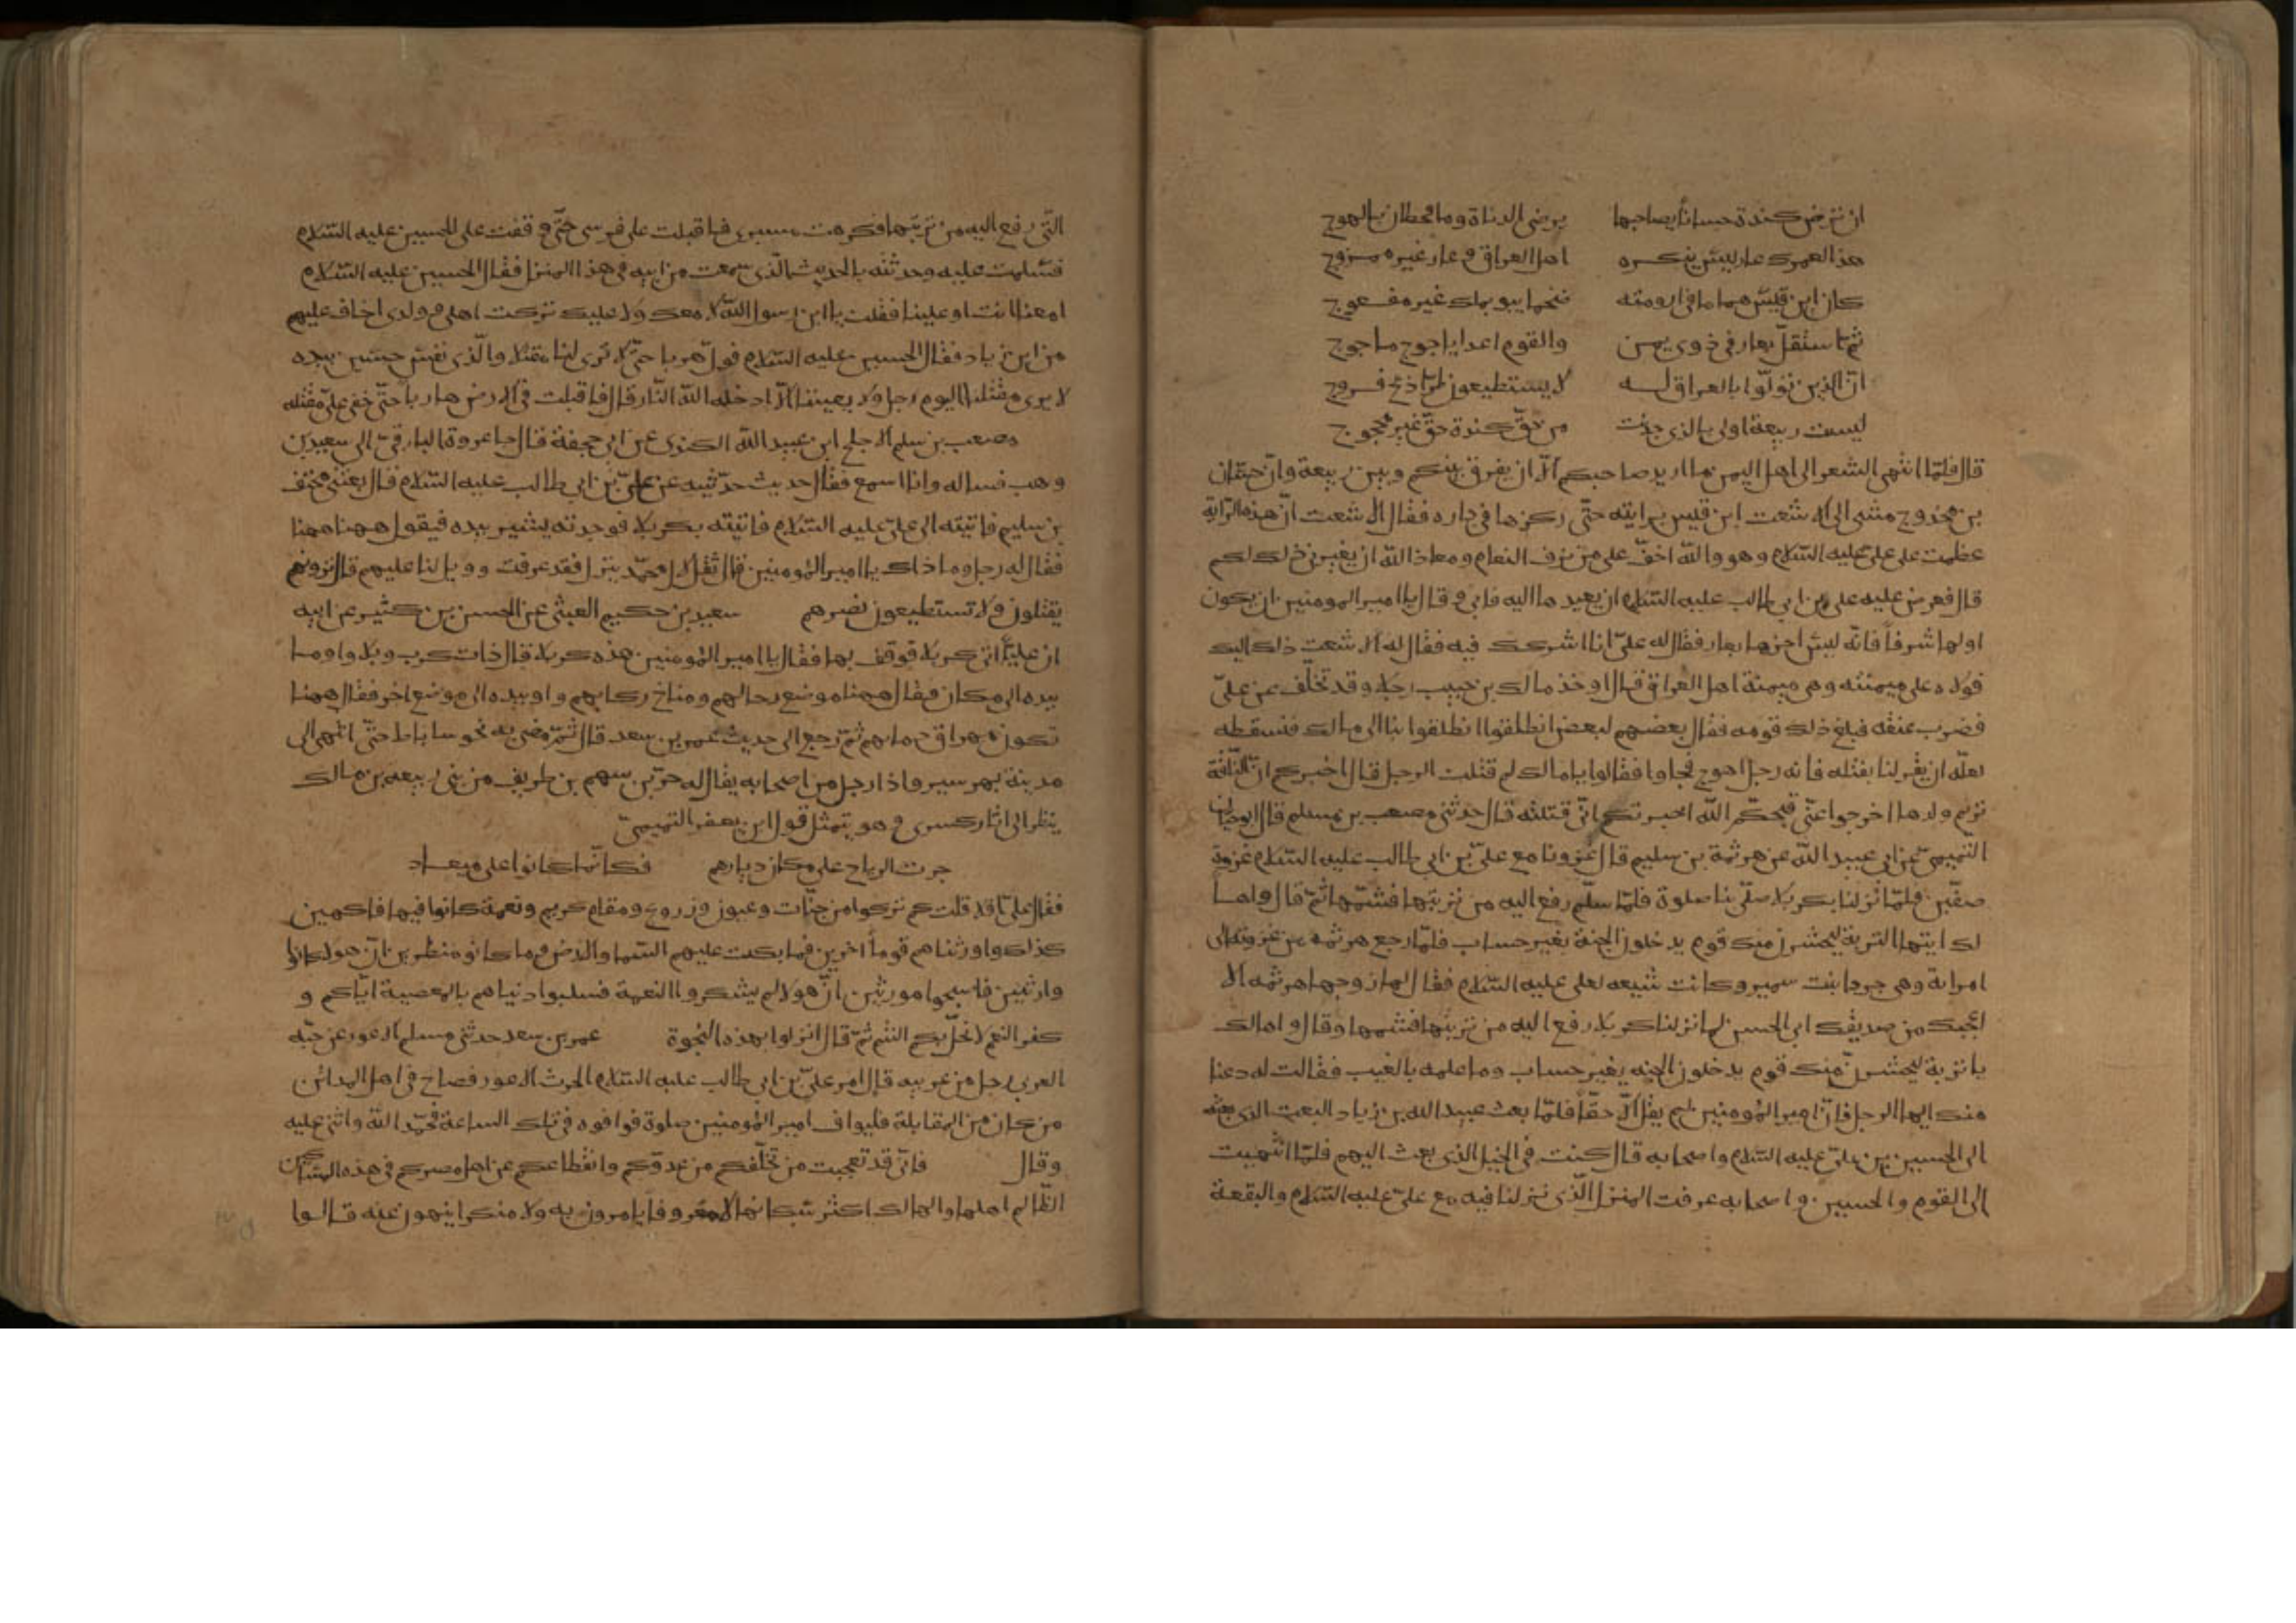 ان ترض كندة حسانا بصاحبها يرضى الدناة وما قحطان بالهوج
هذا لعمرك عار ليس ينكره اهل العراق وعار غير ممزوج
كان ابن قيس هماما في ارومته ضخما يبو بملك غير مفعوج
ثم استقل بعار في ذوي يمن والقوم اعدا ياجوج وماجوج
ان الذين تولوا بالعراق له لا يستطيعون طرا ذبح فروج
ليست ربيعة اولى بالذي حديت من حق كندة حق غير محجوج
قال فلما انتهى الشعر الى اهل اليمن ما يريد صاحبكم الا ان يفرق بينكم وبين ربيعة وان حسان
بن مخدوج مشى الى الاشعث ابن قيس برايته حتى ركزها في داره فقال الاشعث ان هذه الراية
عظمت على علي عليه السلام وهو والله اخف علي من زف النعام ومعاذ الله ان يغيرني ذلك لكم
قال فعرض عليه علي بن ابي طالب عليه السلام ان يعيدها اليه فابى وقال يا امير المومنين ان يكون
اولها شرفا فانه ليس اخرها بعار فقال له علي انا اشركك فيه فقال له الاشعث ذلك اليك
فولاه على ميمنته وهي ميمنة اهل العراق قال واخذ مالك بن حبيب رجلا وقد تخلف عن علي
فضرب عنقه فبلغ ذلك قومه فقال بعضهم لبعض انطلقوا انطلقوا بنا الى مالك فنسقطه
لعله ان يقر لنا بقتله فانه رجل اهوج فجاوا فقالوا يا مالك لم قتلت الرجل قال اخبركم ان الناقة
ترم ولدها اخرجوا عني قبحكم الله اخبرتكم اني قتلته قال حدثني مصعب بن مسلم قال ابو حيان
التميمي عن ابي عبيد الله عن هرثمة بن سليم قال غزونا مع علي بن ابي طالب عليه السلام غزوة
صفين فلما نزلنا بكربلا صلى بنا صلوة فلما سلم رفع اليه من تربتها فشمها ثم قال واها
لك ايتها التربة ليحشرن منك قوم يدخلون الجنة بغير حساب فلما رجع هرثمه من غزوته الى
امراته وهي جردا بنت سمير وكانت شيعه لعلي عليه السلام فقال لها زوجها هرثمه الا
اعجبك من صديقك ابي الحسن لما نزلنا كربلا رفع اليه من تربتها فشمها وقال واها لك
يا تربة ليحشرن منك قوم يدخلون الجنه بغير حساب وما علمه بالغيب فقالت له دعنا
منك ايها الرجل فان امير المؤمنين لم يقل الا حقا فلما بعث عبيد الله بن زياد البعث الذي بعثه
الى الحسين بن علي عليه السلام واصحابه قال كنت في الخيل الذي بعث اليهم فلما انتهيت
الى القوم والحسين واصحابه عرفت المنزل الذي نزلنا فيه مع علي عليه السلام والبقعة
التي رفع اليه من تربتها فكرهت مسيري فاقبلت على فرسي حتى وقفت على الحسين عليه السلام
فسلمت عليه وحدثته بالحديث الذي سمعت من ابيه في هذا المنزل فقال الحسين عليه السلام
امعنا انت او علينا فقلت يا ابن رسول الله لا معك ولا عليك تركت اهلي وولدي اخاف عليهم
من ابن زياد فقال الحسين عليه السلام فول هربا حتى لا ترى لنا مقتلا والذي نفس حسين بيده
لا يرى مقتلنا اليوم رجل ولا يعيننا الا ادخله الله النار قال فاقبلت في الارض هاربا حتى خفي علي مقتله
مصعب بن سلم الاجلح ابن عبيد الله الكندي عن ابي جحفة قال جا عروة البارقي الى سعيد بن
وهب فساله وانا اسمع فقال حديث حدثتيه عن علي بن ابي طالب عليه السلام قال بعثني مخنف
بن سليم فاتيته الى علي عليه السلام فاتيته بكربلا فوجدته يشير بيده فيقول ههنا ههنا
فقال له رجل وما ذاك يا امير المؤمنين قال ثقل لال محمد ينزل فقد عرفت وويل لنا عليهم قال ترونهم
يقتلون ولا تستطيعون نصرهم سعيد بن حكيم العبثي عن الحسن بن كثير عن ابيه
ان عليا اتى كربلا فوقف بها فقال يا امير المؤمنين هذه كربلا قال ذات كرب وبلا واوما
بيده الى مكان فقال ههنا موضع رحالهم ومناخ ركابهم واو بيده الى موضع اخر فقال ههنا
تكون مهراق دمايهم ثم رجع الى حديث عمر بن سعد قال ثم مضى به نحو ساباط حتى انتهى الى
مدينة بهرسير واذا رجل من اصحابه يقال له حر بن سهم بن طريف من بني ربيعه بن مالك
ينظر الى اثار كسرى وهو يتمثل قول ابن يعفر التميمي
جرت الرياح على مكان ديارهم فكانما كانوا على ميعاد
فقال علي اقد قلت كم تركوا من جنات وعيون وزروع ومقام كريم ونعمة كانوا فيها فاكهين
كذلك واورثناهم قوما اخرين فما بكت عليهم السما والارض وما كانو منظرين ان هولا كانوا
وارثين فاصبحوا مورثين ان هولا لم يشكروا النعمة فسلبوا دنياهم بالمعصية اياكم و
كفر النعم لا تحل بكم النقم ثم قال انزلوا بهذه النجوة عمر بن سعد حدثني مسلم الاعور عن حبه
العربي رجل من عرينه قال امر علي بن ابي طالب عليه السلام الحرث الاعور فصاح في اهل المدائن
من كان من المقاتلة فليواف امير المؤمنين صلوة فوافوه في تلك الساعة فحمد الله واثنى عليه
وقال فاني قد تعجبت من تخلفكم من عدوكم وانقطاعكم عن اهل مصركم في هذه المساكن
الظالم اهلها والهالك اكثر سكانها لا معروفا يامرون به ولا منكرا ينهون عنه قالوا